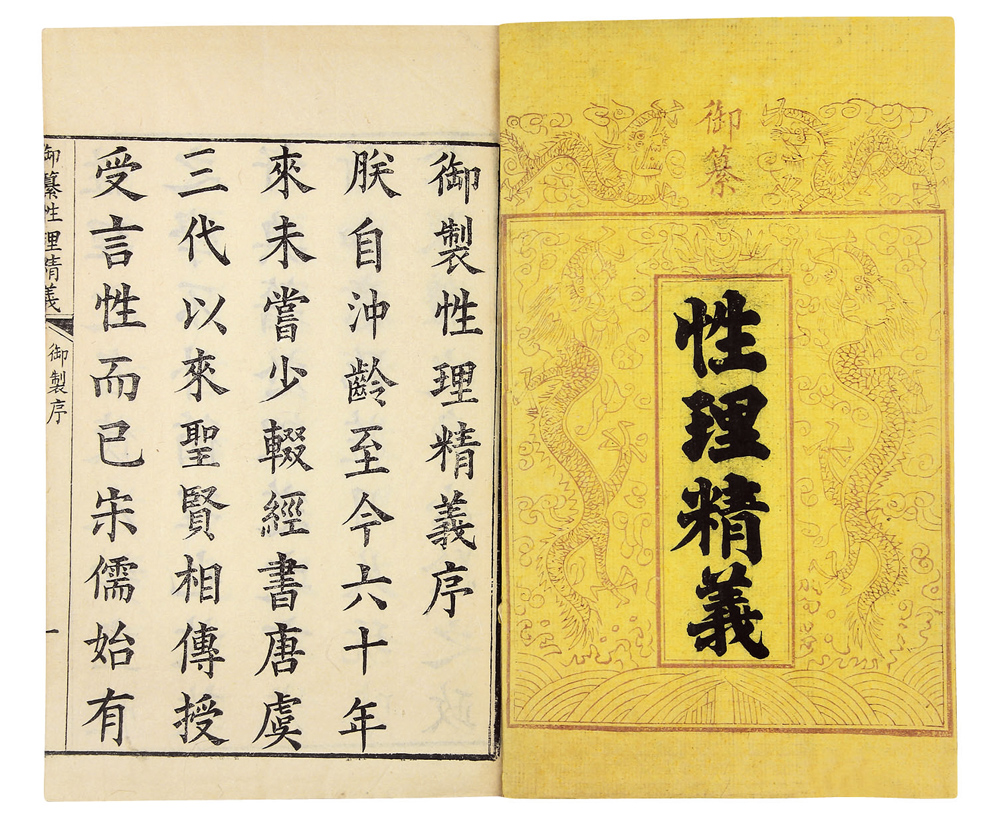 御纂
性理精義
御製性理精義序
朕自沖齡至今六十年
來未嘗少輟經書唐虞
三代以來聖賢相傳授
受言性而已宋儒始有
御纂性理精義
御製序
一